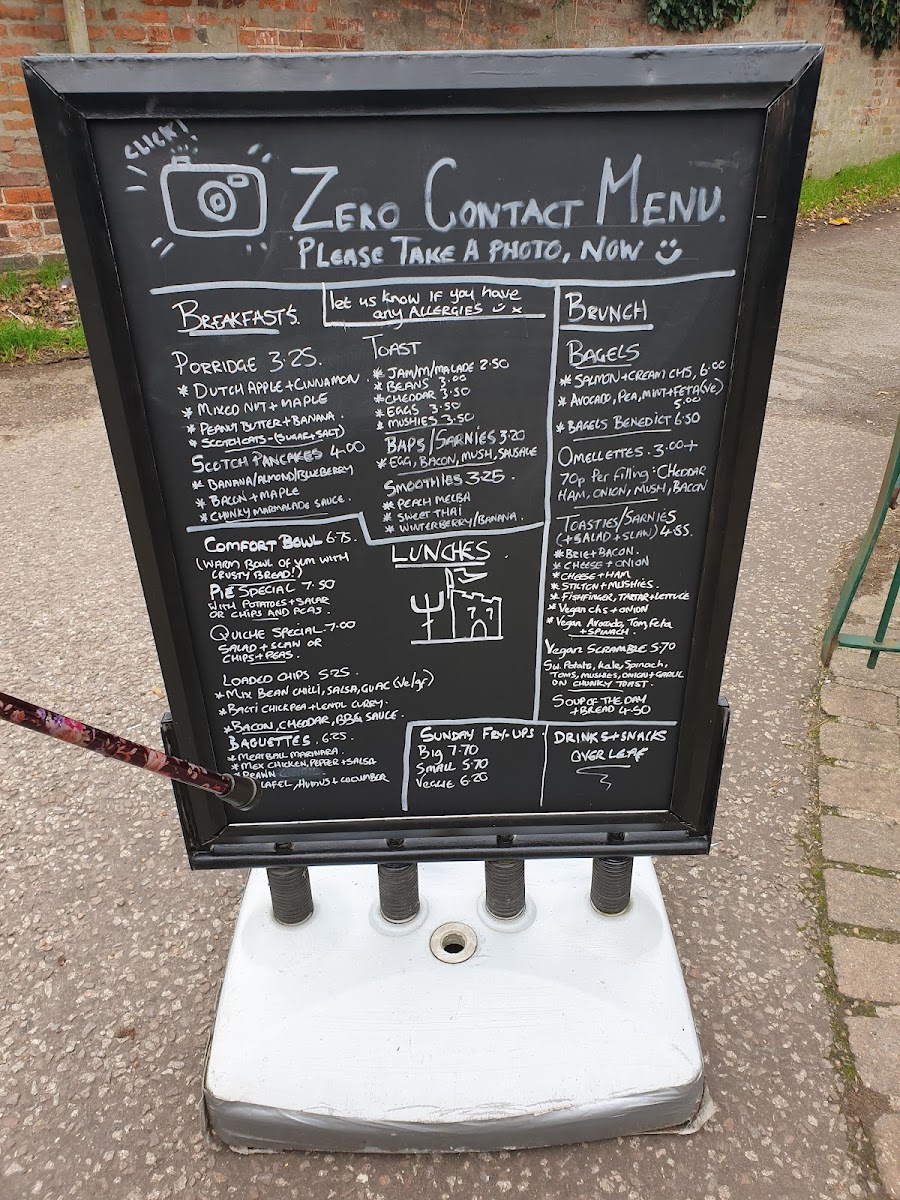 CLICK!
ZERO CONTACT MENU.
PLEASE TAKE A PHOTO, NOW
BREAKFAST'S.
let us know IF you have
any ALLERGIES x
PORRIDGE 3.25.
* DUTCH APPLE + CINNAMON
* MIXED NUT + MAPLE
* PEANUT BUTTER + BANANA
* SCOTCH OATS - (SUGAR + SALT)
SCOTCH PANCAKES 4.00
* BANANA/ALMOND/BLUEBERRY
* BACON + MAPLE
* CHUNKY MARMALADE SAUCE.
TOAST
* JAM/M/MALADE 2.50
* BEANS 3.00
* CHEDDAR 3.50
* EGGS 3.50
* MUSHIES 3.50
BAPS/SARNIES 3.20
* EGG, BACON, MUSH, SAUSAGE
SMOOTHIES 3.25.
* PEACH MELBA
* SWEET THAI
* WINTERBERRY/BANANA.
BRUNCH
BAGELS
* SALMON + CREAM CHS, 6.00
* AVOCADO, PEA, MINT + FETA (VE)
5.00
* BAGELS BENEDICT 6.50
OMELLETTES. 3.00+
70p PER FILLING: CHEDDAR
HAM, ONION, MUSH, BACON
TOASTIES/SARNIES
(+ SALAD + SLAW) 4.85.
* BRIE + BACON.
* CHEESE + ONION
* CHEESE + HAM
* STILTON + MUSHIES.
* FISHFINGER, TARTAR + LETTUCE
* Vegan chs + onion
* Vegan Avocado, Tom, Feta
+ SPINACH.
Vegan SCRAMBLE 5.70
Sw. Potato, Kale, Spinach,
TOMS, MUSHIES, ONION + GARLIC
ON CHUNKY TOAST.
SOUP OF THE DAY
+ BREAD 4.50
LUNCHES.
COMFORT BOWL 6.75.
(WARM BOWL OF YUM WITH
CRUSTY BREAD!)
PIE SPECIAL 7.50
WITH POTATOES + SALAR
OR CHIPS AND PEAS.
QUICHE SPECIAL. 7.00
SALAD + SLAW OR
CHIPS + PEAS.
LOADED CHIPS 5.25.
* MIX BEAN CHILLI, SALSA, GUAC (Ve/gf)
* BALTI CHICKPEA + LENTIL CURRY.
* BACON, CHEDDAR, BBQ SAUCE.
BAGUETTES. 6.25.
* MEATBALL MARINARA.
* MEX CHICKEN, PEPPER + SALSA
* PRAWN
LAFEL, HUMUS + CUCUMBER
SUNDAY FRY-UPS.
BIG 7.70
SMALL 5.70
VEGGIE 6.20
DRINKS + SNACKS
OVER LEAF